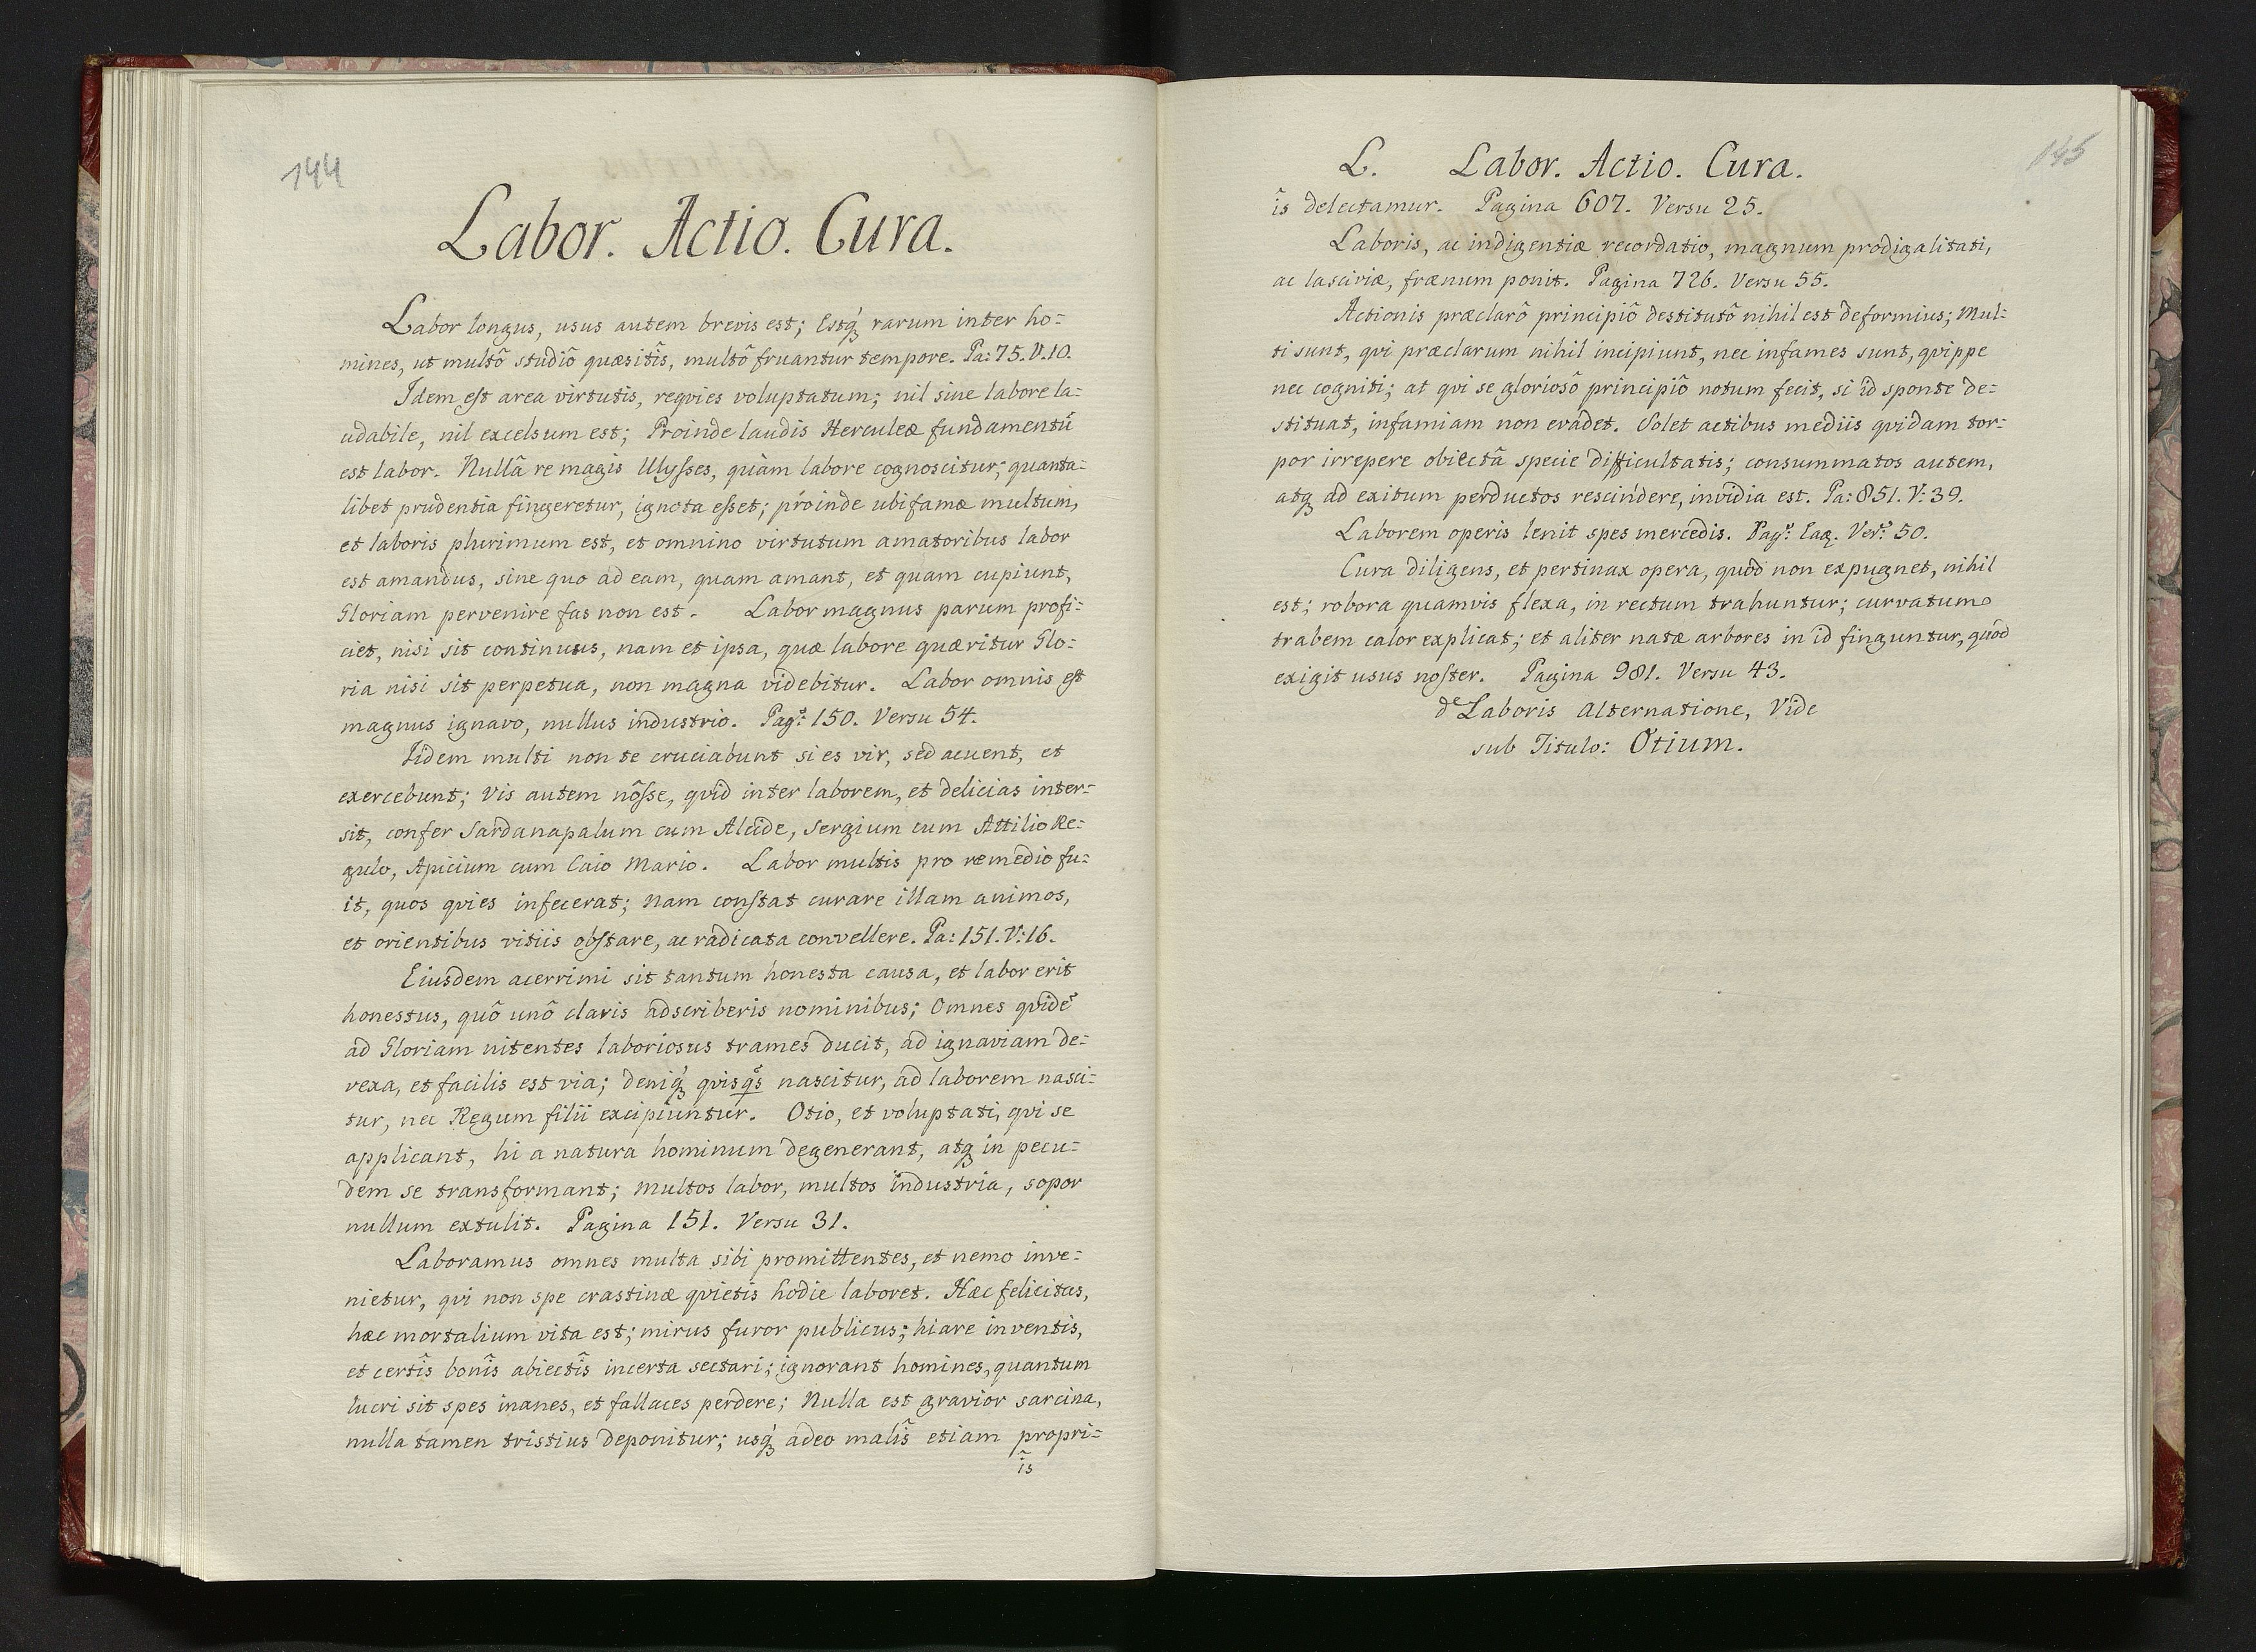 144
Labor. Actio. Cura.
Labor longus, usus autem brevis est; Estq́ꝫ rarum inter ho=
mines, ut multô studiô quæsitîs, multô fruantur tempore. Pa: 75. V. 10.
Idem est area virtutis, reqvies voluptatum; nil sine labore la=
udabile, nil excelsum est; Proinde laudis Herculeæ fundamentũ
est labor. Nullâ re magis Ulysses, quàm labore cognoscitur; quanta=
libet prudentia fingeretur, ignota esset; próinde ubi famæ multum,
et laboris plurimum est, et omnino virtutum amatoribus labor
est amandus, sine quo ad eam, quam amant, et quam cupiunt,
Gloriam pervenire fas non est. Labor magnus parum profi=
ciet, nisi sit continuus, nam et ipsa, quæ labore quæritur Glo=
ria nisi sit perpetua, non magna videbitur. Labor omnis est
magnus ignavo, nullus industrio. Pagᵃ: 150. Versu 54.
Iidem multi non te cruciabunt si es vir, sed acuent, et
exercebunt; Vis autem nôsse, qvid inter laborem, et delicias inter=
sit, confer Sardanapalum cum Alcide, Sergium cum Attilio Re=
gulo, Apicium cum Caio Mario. Labor multis pro remedio fu=
it, quos qvies infecerat; Nam constat curare illam animos,
et orientibus vitiis obstare, ac radicata convellere. Pa: 151. V: 16.
Eiusdem acerrimi sit tantum honesta causa, et labor erit
honestus, quô unô claris adscriberis nominibus; Omnes qvidẽ
ad Gloriam nitentes laboriosus trames ducit, ad ignaviam de=
vexa, et facilis est via; Deniq́ꝫ qvisqs nascitur, ad laborem nasci=
tur, nec Regum filii excipiuntur. Otio, et voluptati, qvi se
applicant, hi a natura hominum degenerant, atqꝫ in pecu=
dem se transformant; Multos labor, multos industria, sopor
nullum extulit. Pagina 151. Versu 31.
Laboramus omnes multa sibi promittentes, et nemo inve=
nietur, qvi non spe crastinæ qvietis hodie laboret. Hæc felicitas,
hæc mortalium vita est; mirus furor publicus; hiare inventis,
et certîs bonîs abiectîs incerta sectari; ignorant homines, quantum
lucri sit spes inanes, et fallaces perdere; Nulla est gravior sarcina,
nulla tamen tristius deponitur; usq́ꝫ adeo malîs etiam propri=
îs
145
L. Labor. Actio. Cura.
îs delectamur. Pagina 607. Versu 25.
Laboris, ac indigentiæ recordatio, magnum prodigalitati,
ac lasciviæ, frænum ponit. Pagina 726. Versu 55.
Actionis præclarô principiô destitutô nihil est deformius; Mul=
ti sunt, qvi præclarum nihil incipiunt, nec infames sunt, qvippe
nec cogniti; at qvi se gloriosô principiô notum fecit, si id sponte de=
stituat, infamiam non evadet. Solet actibus mediis qvidam tor=
por irrepere obiectâ specie difficultatis; consummatos autem,
atqꝫ ad exitum perductos rescindere, invidia est. Pa: 851. V: 39.
Laborem operis lenit spes mercedis. Pagᵃ: Eaq. Verˢ: 50.
Cura diligens, et pertinax opera, quòd non expugnet, nihil
est; robora quamvis flexa, in rectum trahuntur; curvatum
trabem calor explicat; et aliter natæ arbores in id finguntur, quòd
exigit usus noster. Pagina 981. Versu 43.
de Laboris Alternatione, Vide
sub Titulo: Otium.